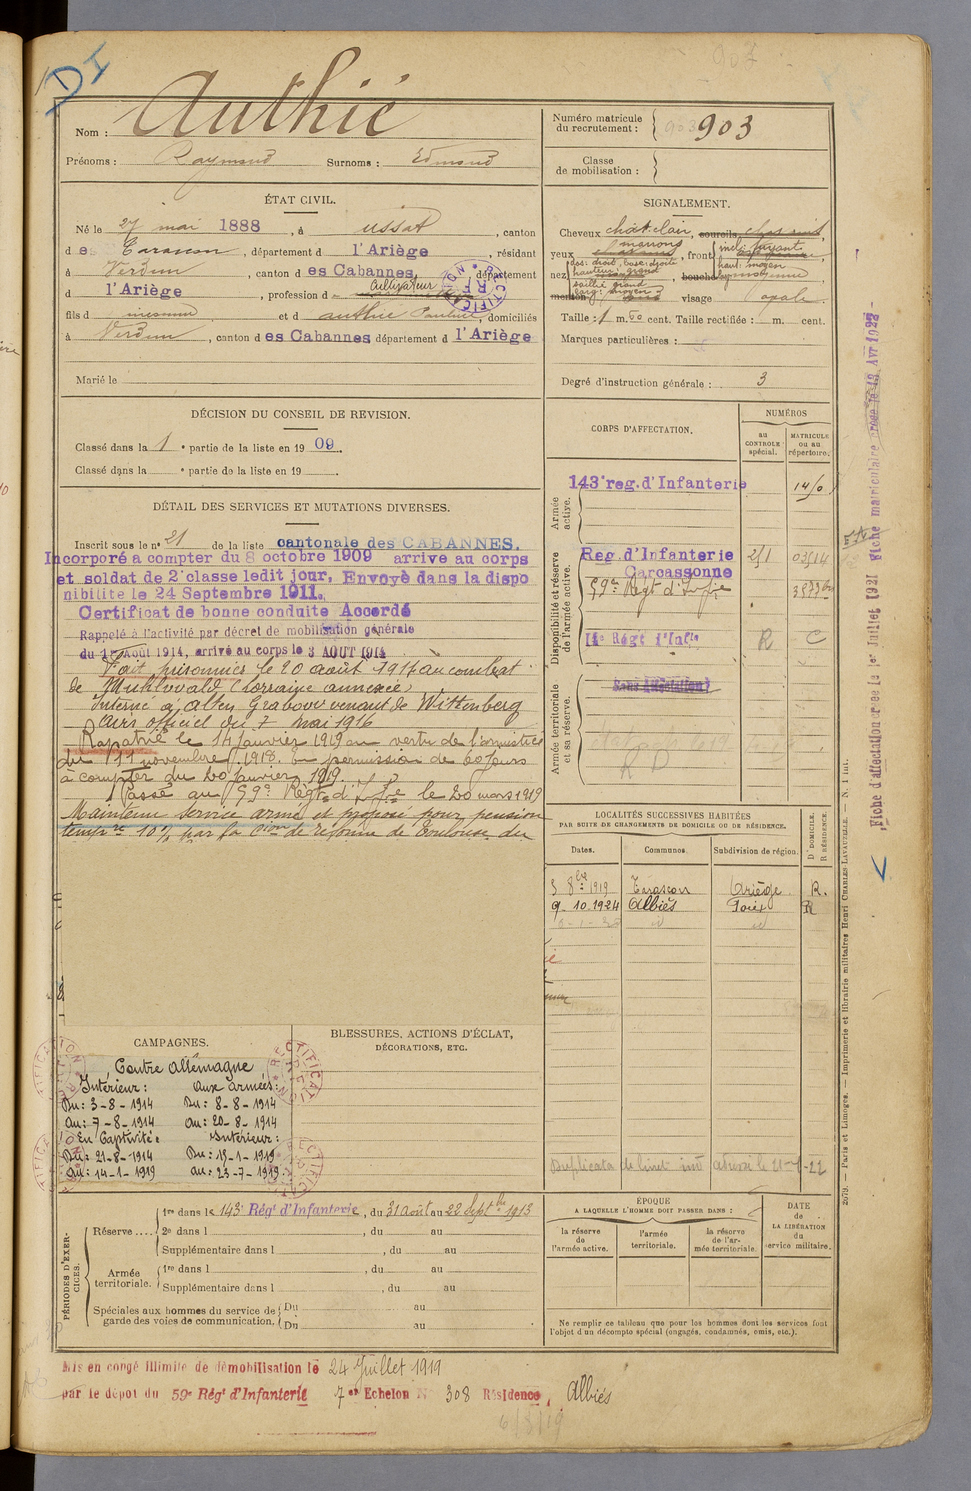 DI
Nom : Authié
Prénoms : Raymond Surnoms : Edmond
Numéro matricule du recrutement : 903
Classe de mobilisation :
ÉTAT CIVIL.
Né le 27 mai 1888, à Ussat, canton
d es Tarascon, département d l'Ariège, résidant
à Verdun, canton d es Cabannes, département
d l'Ariège, profession d cultivateur
fils d inconnu et d Authié Pauline, domiciliés
à Verdun, canton d es Cabannes département d l'Ariège
Marié le
SIGNALEMENT.
Cheveux chât. clair, sourcils
yeux marrons, front incl: fuyant
haut: moyen
nez dos: droit, base: droite
hauteur: grand
saillie: grand
larg: moyen
bouche moyenne
menton visage ovale
Taille : 1 m. 60 cent. Taille rectifiée : m. cent.
Marques particulières :
Degré d'instruction générale : 3
DÉCISION DU CONSEIL DE REVISION.
Classé dans la 1e partie de la liste en 1909.
Classé dans la e partie de la liste en 19
DÉTAIL DES SERVICES ET MUTATIONS DIVERSES.
Inscrit sous le n° 21 de la liste cantonale des CABANNES.
Incorporé a compter du 8 octobre 1909 arrive au corps
et soldat de 2e classe ledit jour, Envoyé dans la dispo
nibilite le 24 Septembre 1911.
Certificat de bonne conduite Accordé
Rappelé à l'activité par décret de mobilisation générale
du 1er Août 1914, arrivé au corps le 3 AOUT 1914
Fait prisonnier le 20 août 1914 au combat
de Muhlwald (Lorraine annexée)
Interné à Alten Grabow venant de Wittenberg
avis officiel du 7 mai 1916
Rapatrié le 14 janvier 1919 en vertu de l'armistice
du 11 novembre 1918. En permission de 60 jours
à compter du 20 janvier 1919.
Passé au 59e Régt d'Infie le 20 mars 1919
Maintenu service armé et proposé pour pension
tempre 10% par la Cion de réforme de Toulouse du
CORPS D'AFFECTATION.
NUMÉROS
au CONTROLE spécial.
MATRICULE ou au répertoire.
Armée active.
143e reg. d'Infanterie
Disponibilité et réserve de l'armée active.
Reg. d'Infanterie
Carcassonne
59e Régt d'Infie
Régt d'Infie R C
Armée territoriale et sa réserve.
Sans affectation
RD
LOCALITÉS SUCCESSIVES HABITÉES
PAR SUITE DE CHANGEMENTS DE DOMICILE OU DE RÉSIDENCE.
Dates. Communes. Subdivision de région. D. DOMICILE. R. RÉSIDENCE.
5 8bre 1919 Tarascon Ariège R.
9-10.1924 Albiès Foix R
Duplicata de livret
CAMPAGNES.
Contre Allemagne
Intérieur : Aux armées :
Du : 3-8-1914 Du : 8-8-1914
Au : 7-8-1914 Au : 20-8-1914
En Captivité : Intérieur :
Du : 21-8-1914 Du : 15-1-1919
Au : 14-1-1919 Au : 23-7-1919
RECTIFICATION
BLESSURES, ACTIONS D'ÉCLAT,
DÉCORATIONS, ETC.
PÉRIODES D'EXERCICES.
Réserve .... 1re dans le 143e Régt d'Infanterie, du 31 août au 22 Septbre 1913
2e dans l , du au
Supplémentaire dans l , du au
Armée territoriale. 1re dans l , du au
Supplémentaire dans l , du au
Spéciales aux hommes du service de garde des voies de communication. Du au
Du au
ÉPOQUE
A LAQUELLE L'HOMME DOIT PASSER DANS :
la réserve de l'armée active.
l'armée territoriale.
la réserve de l'armée territoriale.
DATE de LA LIBÉRATION du service militaire.
Ne remplir ce tableau que pour les hommes dont les services font
l'objet d'un décompte spécial (engagés, condamnés, omis, etc.).
Mis en congé illimité de démobilisation le 24 Juillet 1919
par le dépôt du 59e Régt d'Infanterie 7e Echelon N° 308 Résidence, Albiès
Fiche d'affectation créée le 1er Juillet 1921 Fiche matriculaire créée le
2679. — Paris et Limoges. — Imprimerie et librairie militaires Henri CHARLES-LAVAUZELLE. — N. 1 int.